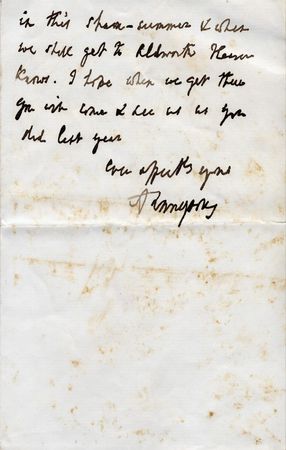 in this sham-summer & when
we shall get to Aldworth Heaven
knows. I hope when we get there
you will come & see us as you
did last year
Ever affect'ly yours
A Tennyson